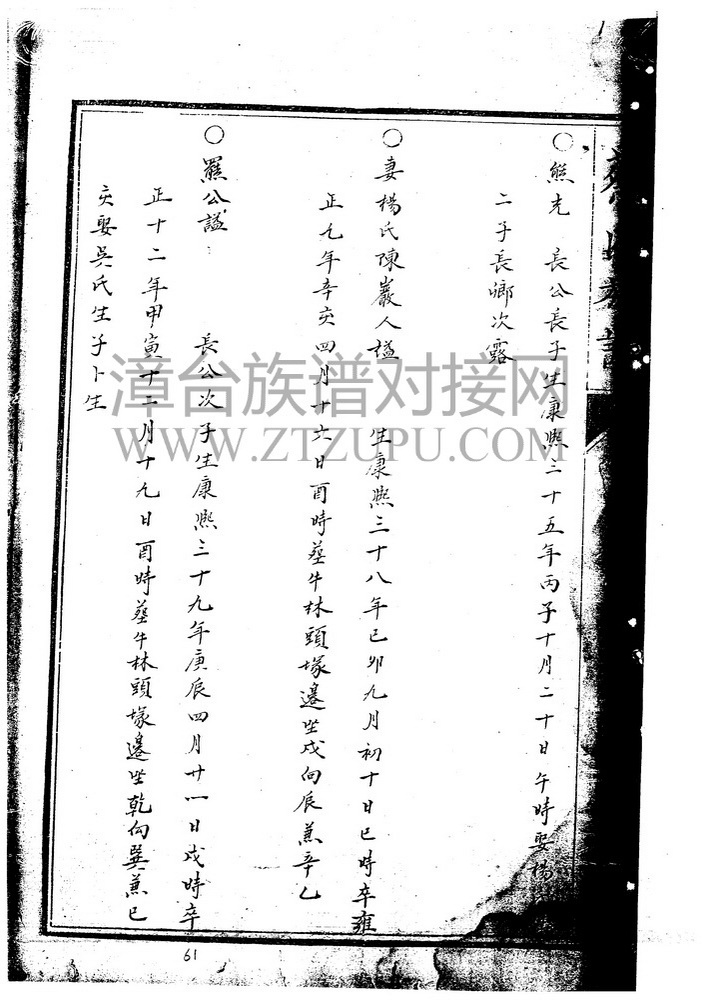 ○熊光 長公長子生康熙三十五年丙子十月二十日午時娶楊
二子長鄉次露
○妻楊氏陳巖人謚 生康熙三十八年己卯九月初十日巳時卒雍
正九年辛亥四月十六日酉時葬牛林頭塚邊坐戌向辰兼辛乙
○羆公謚： 長公次子生康熙三十九年庚辰四月廿一日戌時卒
正十二年甲寅十二月十九日酉時葬牛林頭塚邊坐乾向巽兼巳
亥娶吳氏生子卜生
漳台族谱对接网
WWW.ZTZUPU.COM
61